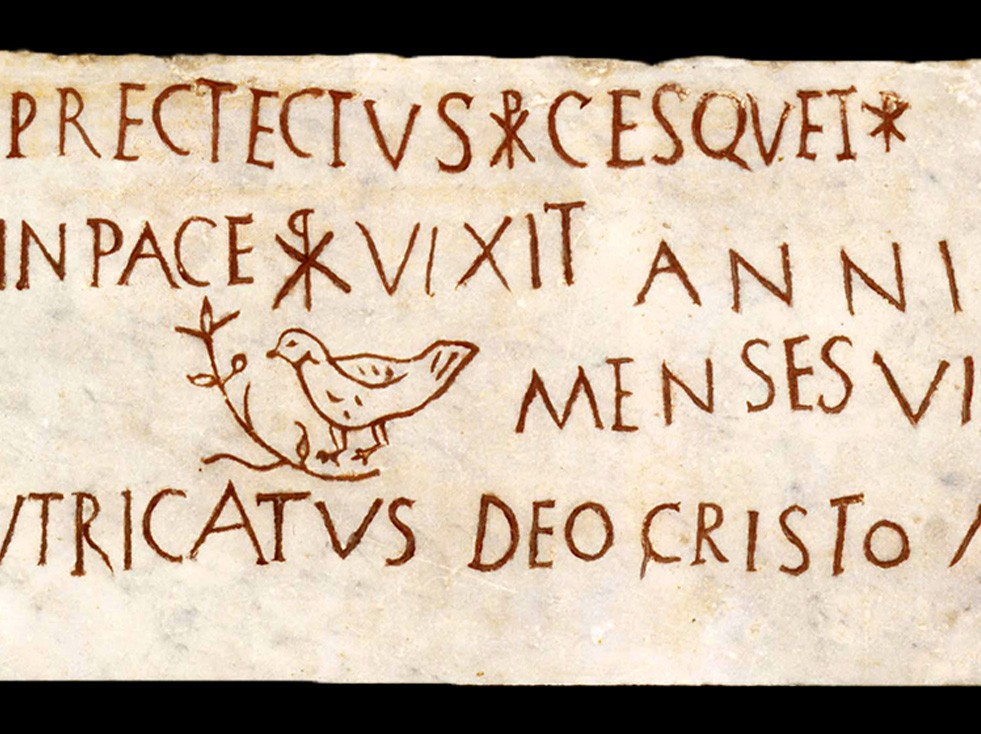 PRECTECTVS ⳩ CESQVET ⳩
IN PACE ⳩ VIXIT ANNI
MENSES VI
VTRICATVS DEO CRISTO